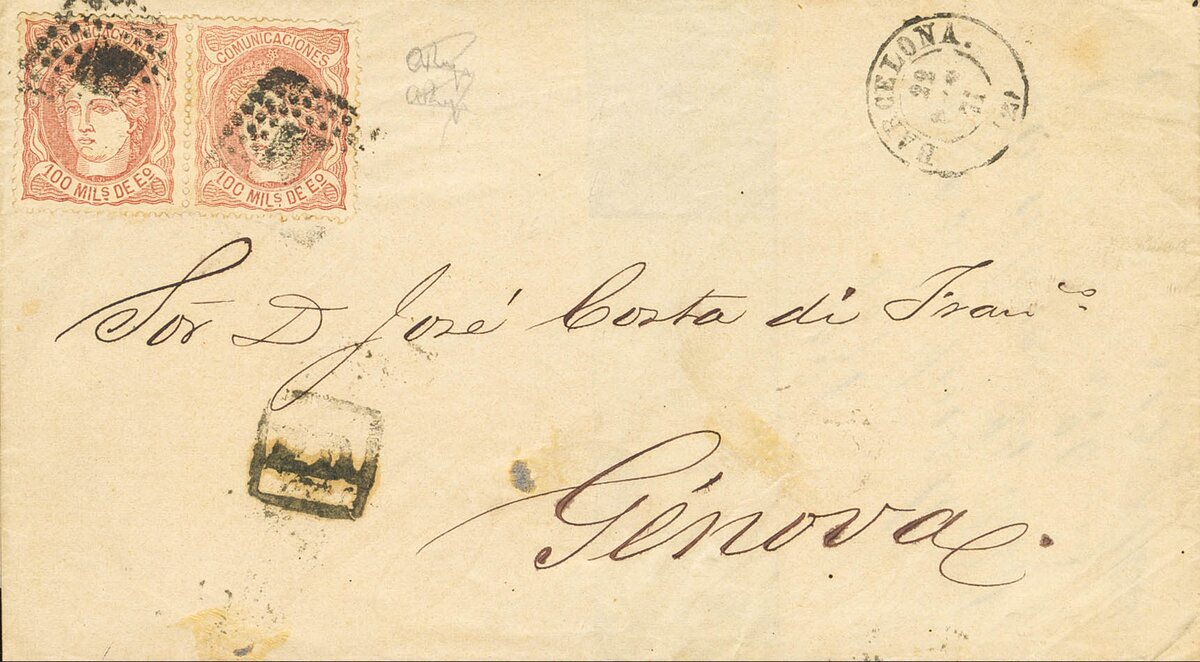 COMUNICACIONES
100 MILS. DE Eo.
COMUNICACIONES
100 MILS. DE Eo.
BARCELONA.
Sor D José Costa di Franco
Génova.